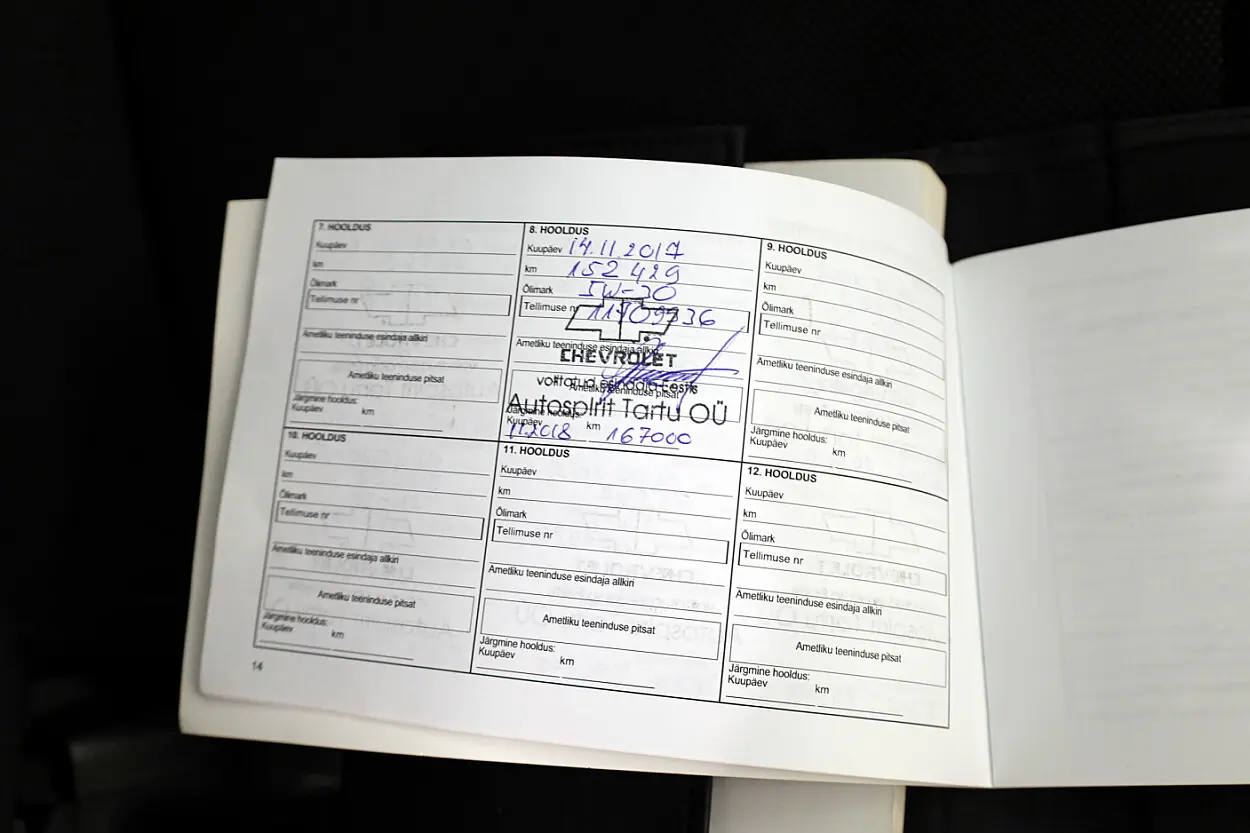 7. HOOLDUS
Kuupäev
km
Õlimark
Tellimuse nr
Ametliku teeninduse esindaja allkiri
Ametliku teeninduse pitsat
Järgmine hooldus:
Kuupäev km
8. HOOLDUS
Kuupäev 14.11.2017
km 152 429
Õlimark 5W-30
Tellimuse nr
Ametliku teeninduse esindaja allkiri
CHEVROLET
volitatud esindaja Eestis
Ametliku teeninduse pitsat
Autospirit Tartu OÜ
Järgmine hooldus:
Kuupäev km
11.2018 167000
9. HOOLDUS
Kuupäev
km
Õlimark
Tellimuse nr
Ametliku teeninduse esindaja allkiri
Ametliku teeninduse pitsat
Järgmine hooldus:
Kuupäev km
10. HOOLDUS
Kuupäev
km
Õlimark
Tellimuse nr
Ametliku teeninduse esindaja allkiri
Ametliku teeninduse pitsat
Järgmine hooldus:
Kuupäev km
11. HOOLDUS
Kuupäev
km
Õlimark
Tellimuse nr
Ametliku teeninduse esindaja allkiri
Ametliku teeninduse pitsat
Järgmine hooldus:
Kuupäev km
12. HOOLDUS
Kuupäev
km
Õlimark
Tellimuse nr
Ametliku teeninduse esindaja allkiri
Ametliku teeninduse pitsat
Järgmine hooldus:
Kuupäev km
14